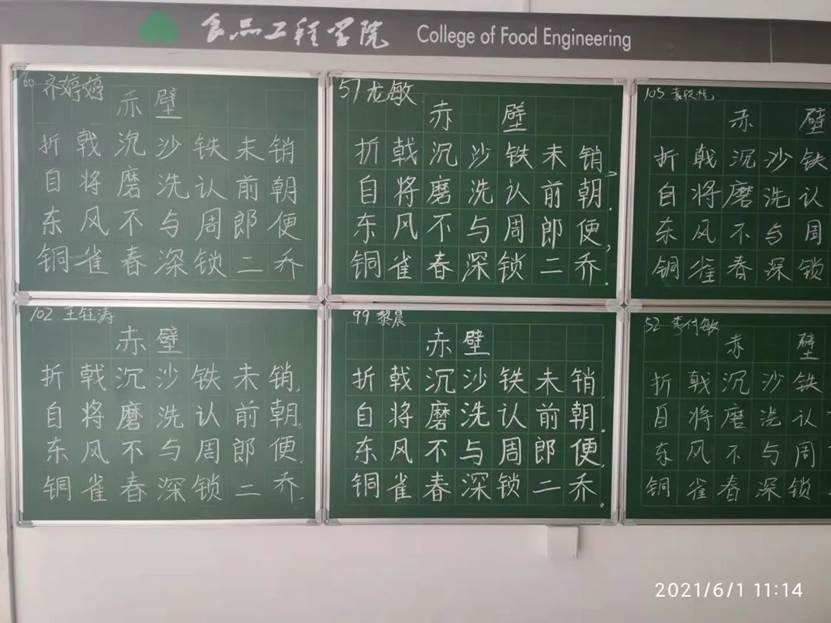 食品工程学院 College of Food Engineering
60 齐婷婷
赤壁
折戟沉沙铁未销
自将磨洗认前朝
东风不与周郎便
铜雀春深锁二乔
57 尤敏
赤壁
折戟沉沙铁未销,
自将磨洗认前朝.
东风不与周郎便,
铜雀春深锁二乔.
105
赤壁
折戟沉沙铁
自将磨洗认
东风不与周
铜雀春深锁
102 王钰涛
赤壁
折戟沉沙铁未销,
自将磨洗认前朝.
东风不与周郎便,
铜雀春深锁二乔.
99 黎晨
赤壁
折戟沉沙铁未销,
自将磨洗认前朝.
东风不与周郎便,
铜雀春深锁二乔.
52 李付敏
赤壁
折戟沉沙铁
自将磨洗认
东风不与周
铜雀春深锁
2021/6/1 11:14